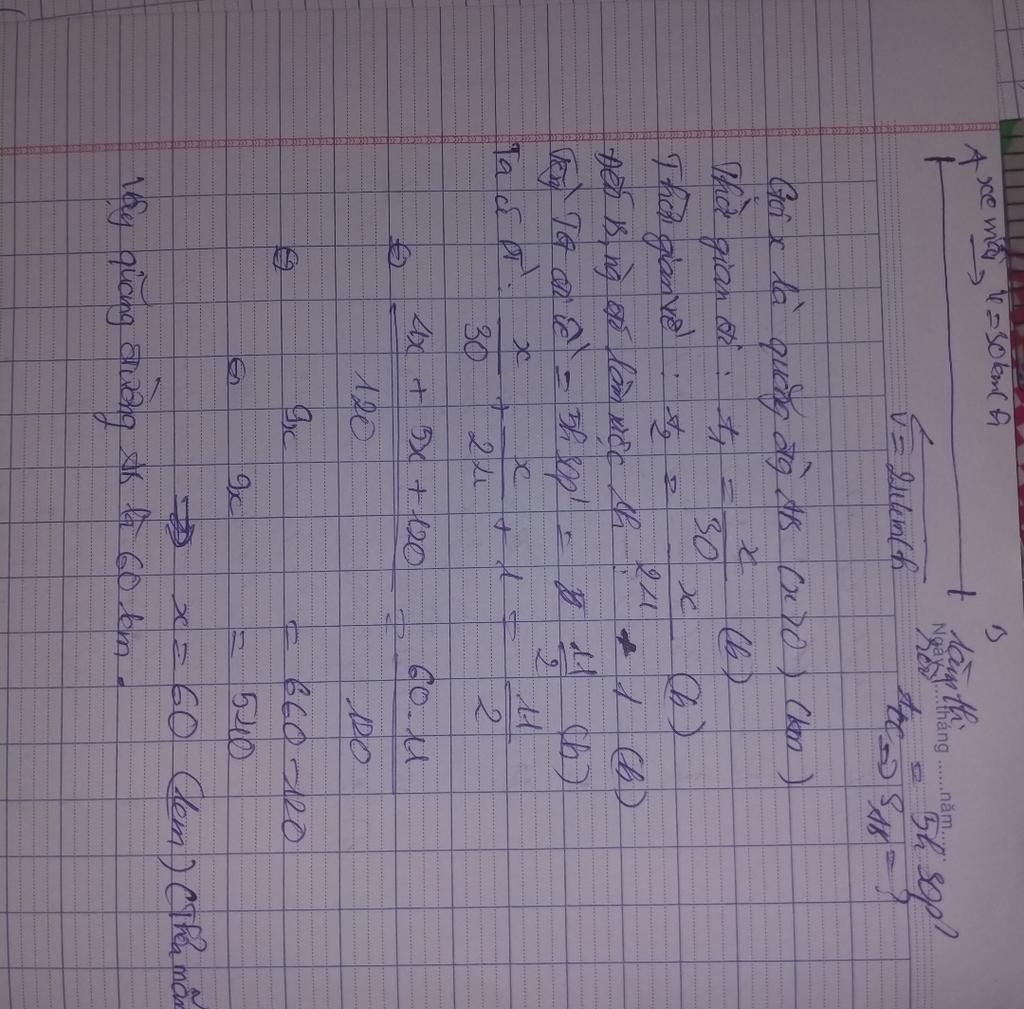 A xe máy → v = 30 km/h B
v = 24 km/h
Ngày ...... tháng ...... năm ......
làm thì 1h
t = 5h 30p'
⇒ S AB = ?
Gọi x là quãng đg AB (x>0) (km)
Thời gian đi : t1 = x/30 (h)
Thời gian về : t2 = x/24 (h)
Đến B, ng đó làm việc 1h : 1 (h)
= 5h30p' = 11/2 (h)
Ta có pt : x/30 + x/24 + 1 = 11/2
⇔ (4x + 5x + 120)/120 = (60.11)/120
⇔ 9x = 660 - 120
⇔ 9x = 540
⇒ x = 60 (km) (Thỏa mãn
Vậy quãng đường AB là 60 km.